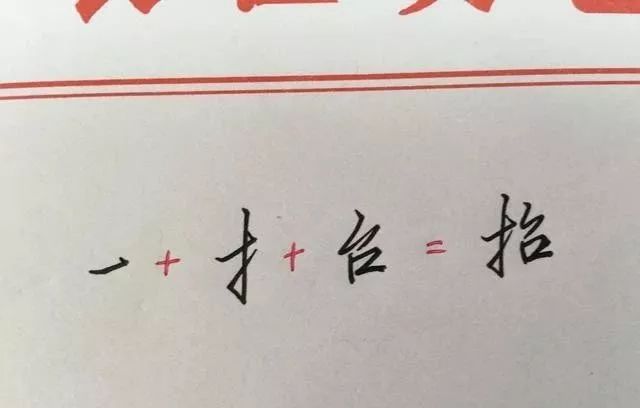 一+扌+台=抬